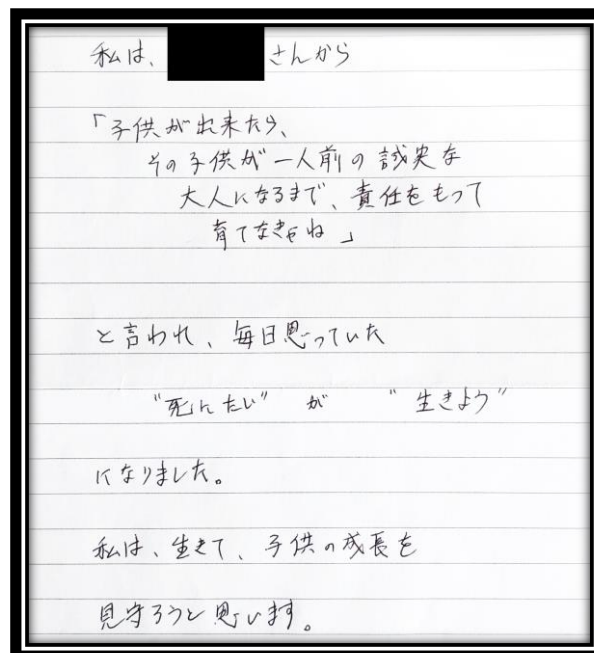 私は、さんから
「子供が出来たら、
その子供が一人前の誠実な
大人になるまで、責任をもって
育てなきゃね」
と言われ、毎日思っていた
"死にたい" が "生きよう"
になりました。
私は、生きて、子供の成長を
見守ろうと思います。